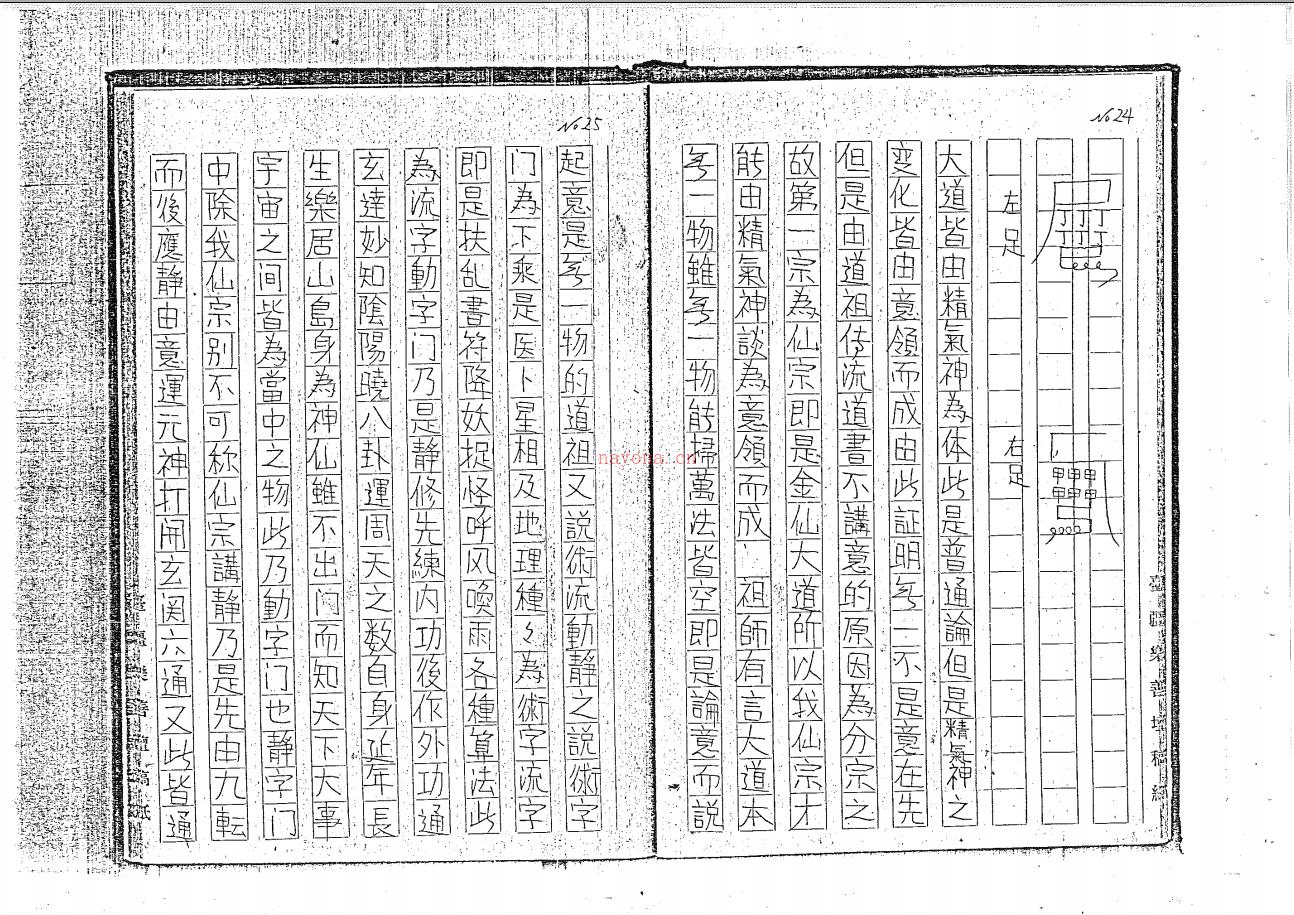 No 24
左足
右足
大道皆由精氣神為体此是普通論但是精氣神之
变化皆由意領而成由此証明無一不是意在先
但是由道祖传流道書不講意的原因為分宗之
故第一宗為仙宗即是金仙大道所以我仙宗才
能由精氣神談為意領而成祖師有言大道本
無一物雖無一物能掃萬法皆空即是論意而説
臺疆樂善壇稿紙
No 25
起意是無一物的道祖又説術流動靜之説術字
门為下乘是医卜星相及地理種々為術字流字
即是扶乱書符降妖捉怪呼风喚雨各種算法此
為流字動字门乃是靜修先練内功後作外功通
玄達妙知陰陽曉八卦運周天之数自身延年長
生樂居山島身為神仙雖不出问而知天下大事
宇宙之间皆為當中之物此乃動字门也靜字门
中除我仙宗别不可称仙宗講靜乃是先由九転
而後應靜由意運元神打開玄関六通又此皆通
臺疆樂善壇稿紙
nayona.cn